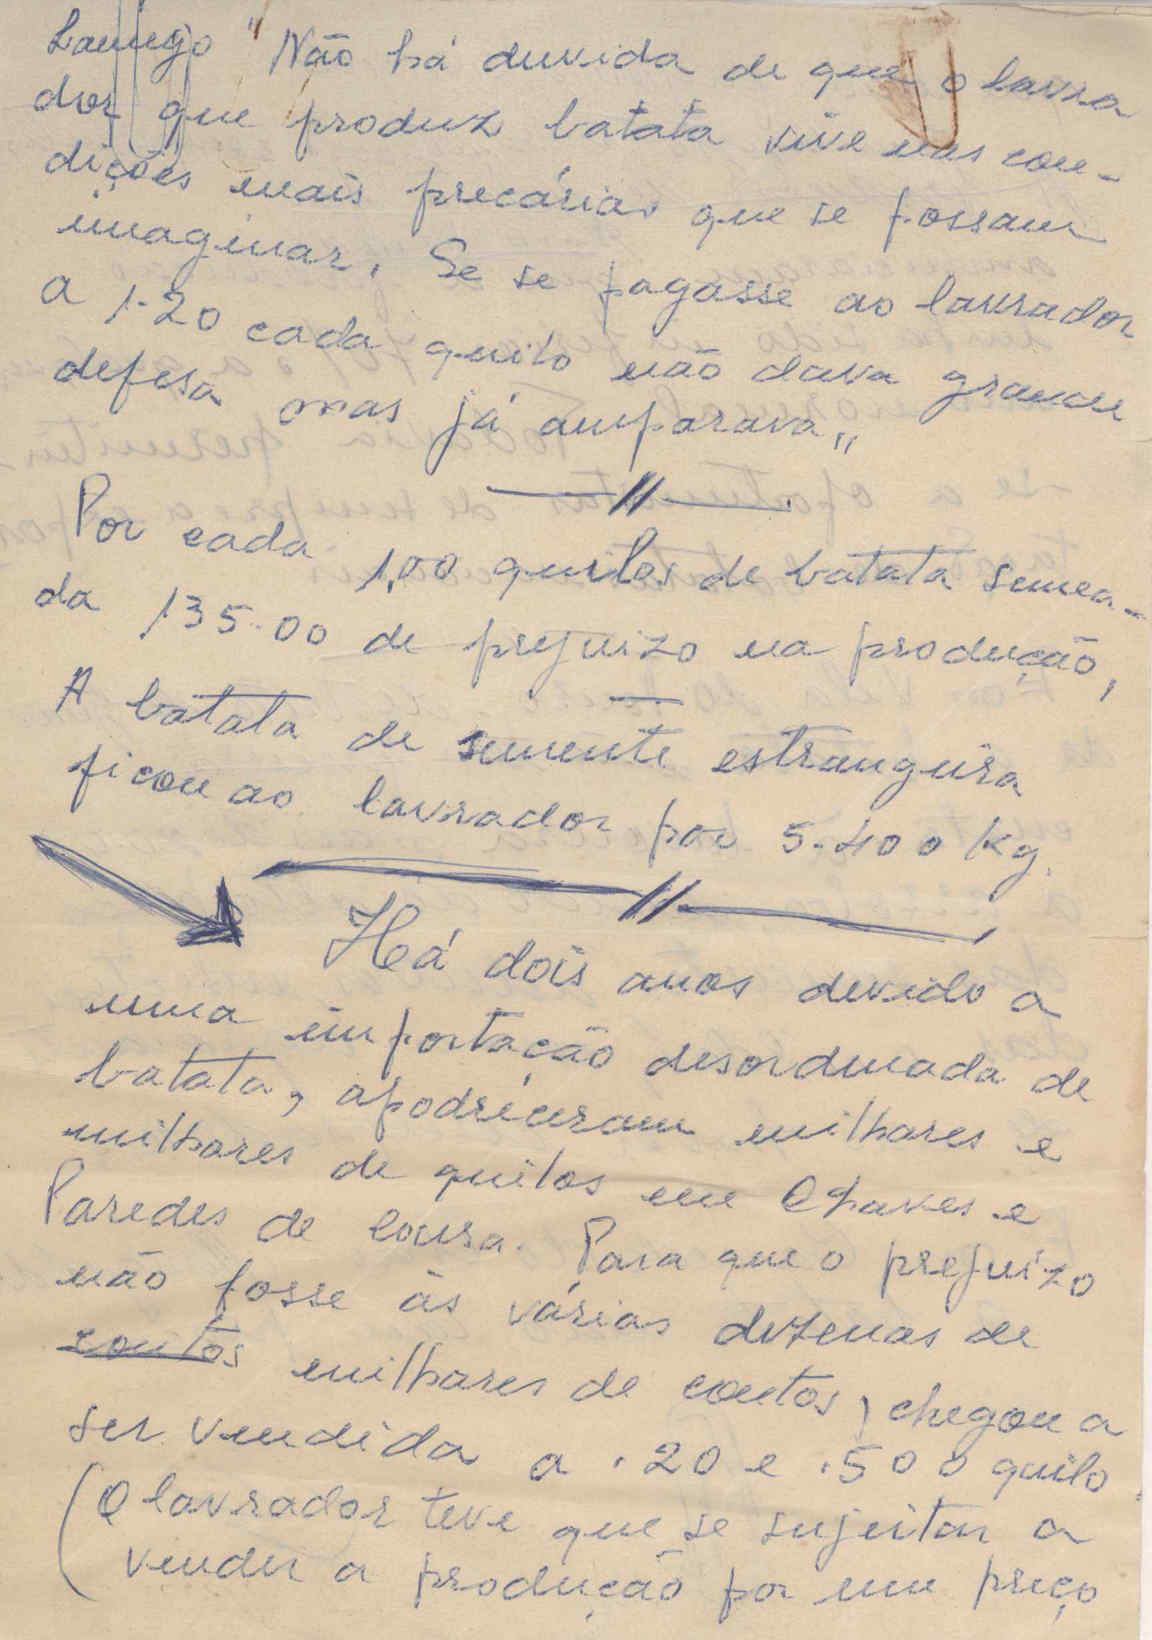 Lamego "Não há duvida de que o lavra
dor que produz batata vive nas con-
dições mais precárias que se possam
imaginar. Se se pagasse ao lavrador
a 1.20 cada quilo não dava grande
defesa mas já amparava"
Por cada 1,00 quilos de batata semea-
da 135.00 de prejuizo na produção,
A batata de semente estrangeira
ficou ao lavrador por 5.400 Kg.
Há dois anos devido a
uma importação desordenada de
batata, apodreceram milhares e
milhares de quilos em Chaves e
Paredes de Coura. Para que o prejuízo
não fosse às várias dezenas de
contos milhares de contos, chegou a
ser vendida a .20 e .50 o quilo.
(O lavrador teve que se sujeitar a
vender a produção por um preço